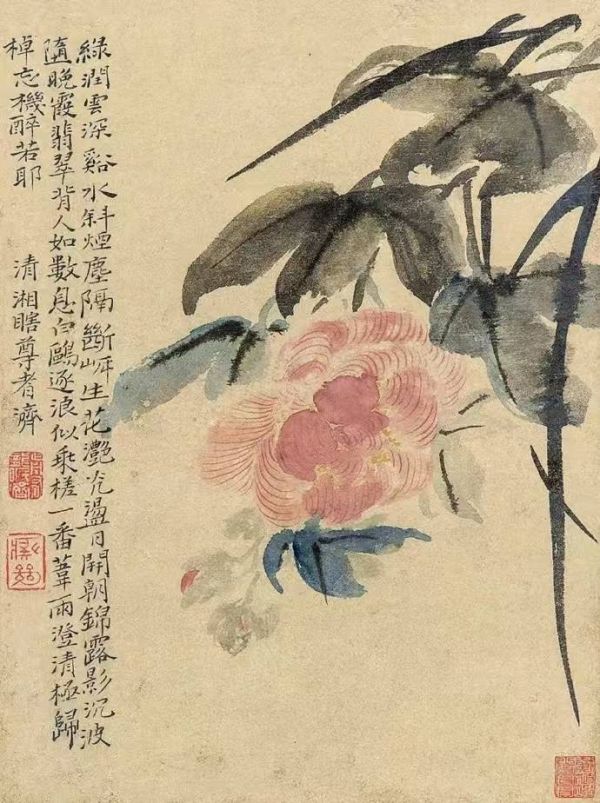 綠潤雲深谿水斜煙塵隔斷岸生花灔光盪日開朝錦露影沉波
隨晚霞翡翠背人如數息白鷗逐浪似乘槎一番葦雨澄清極歸
棹忘機醉若耶
清湘瞎尊者濟